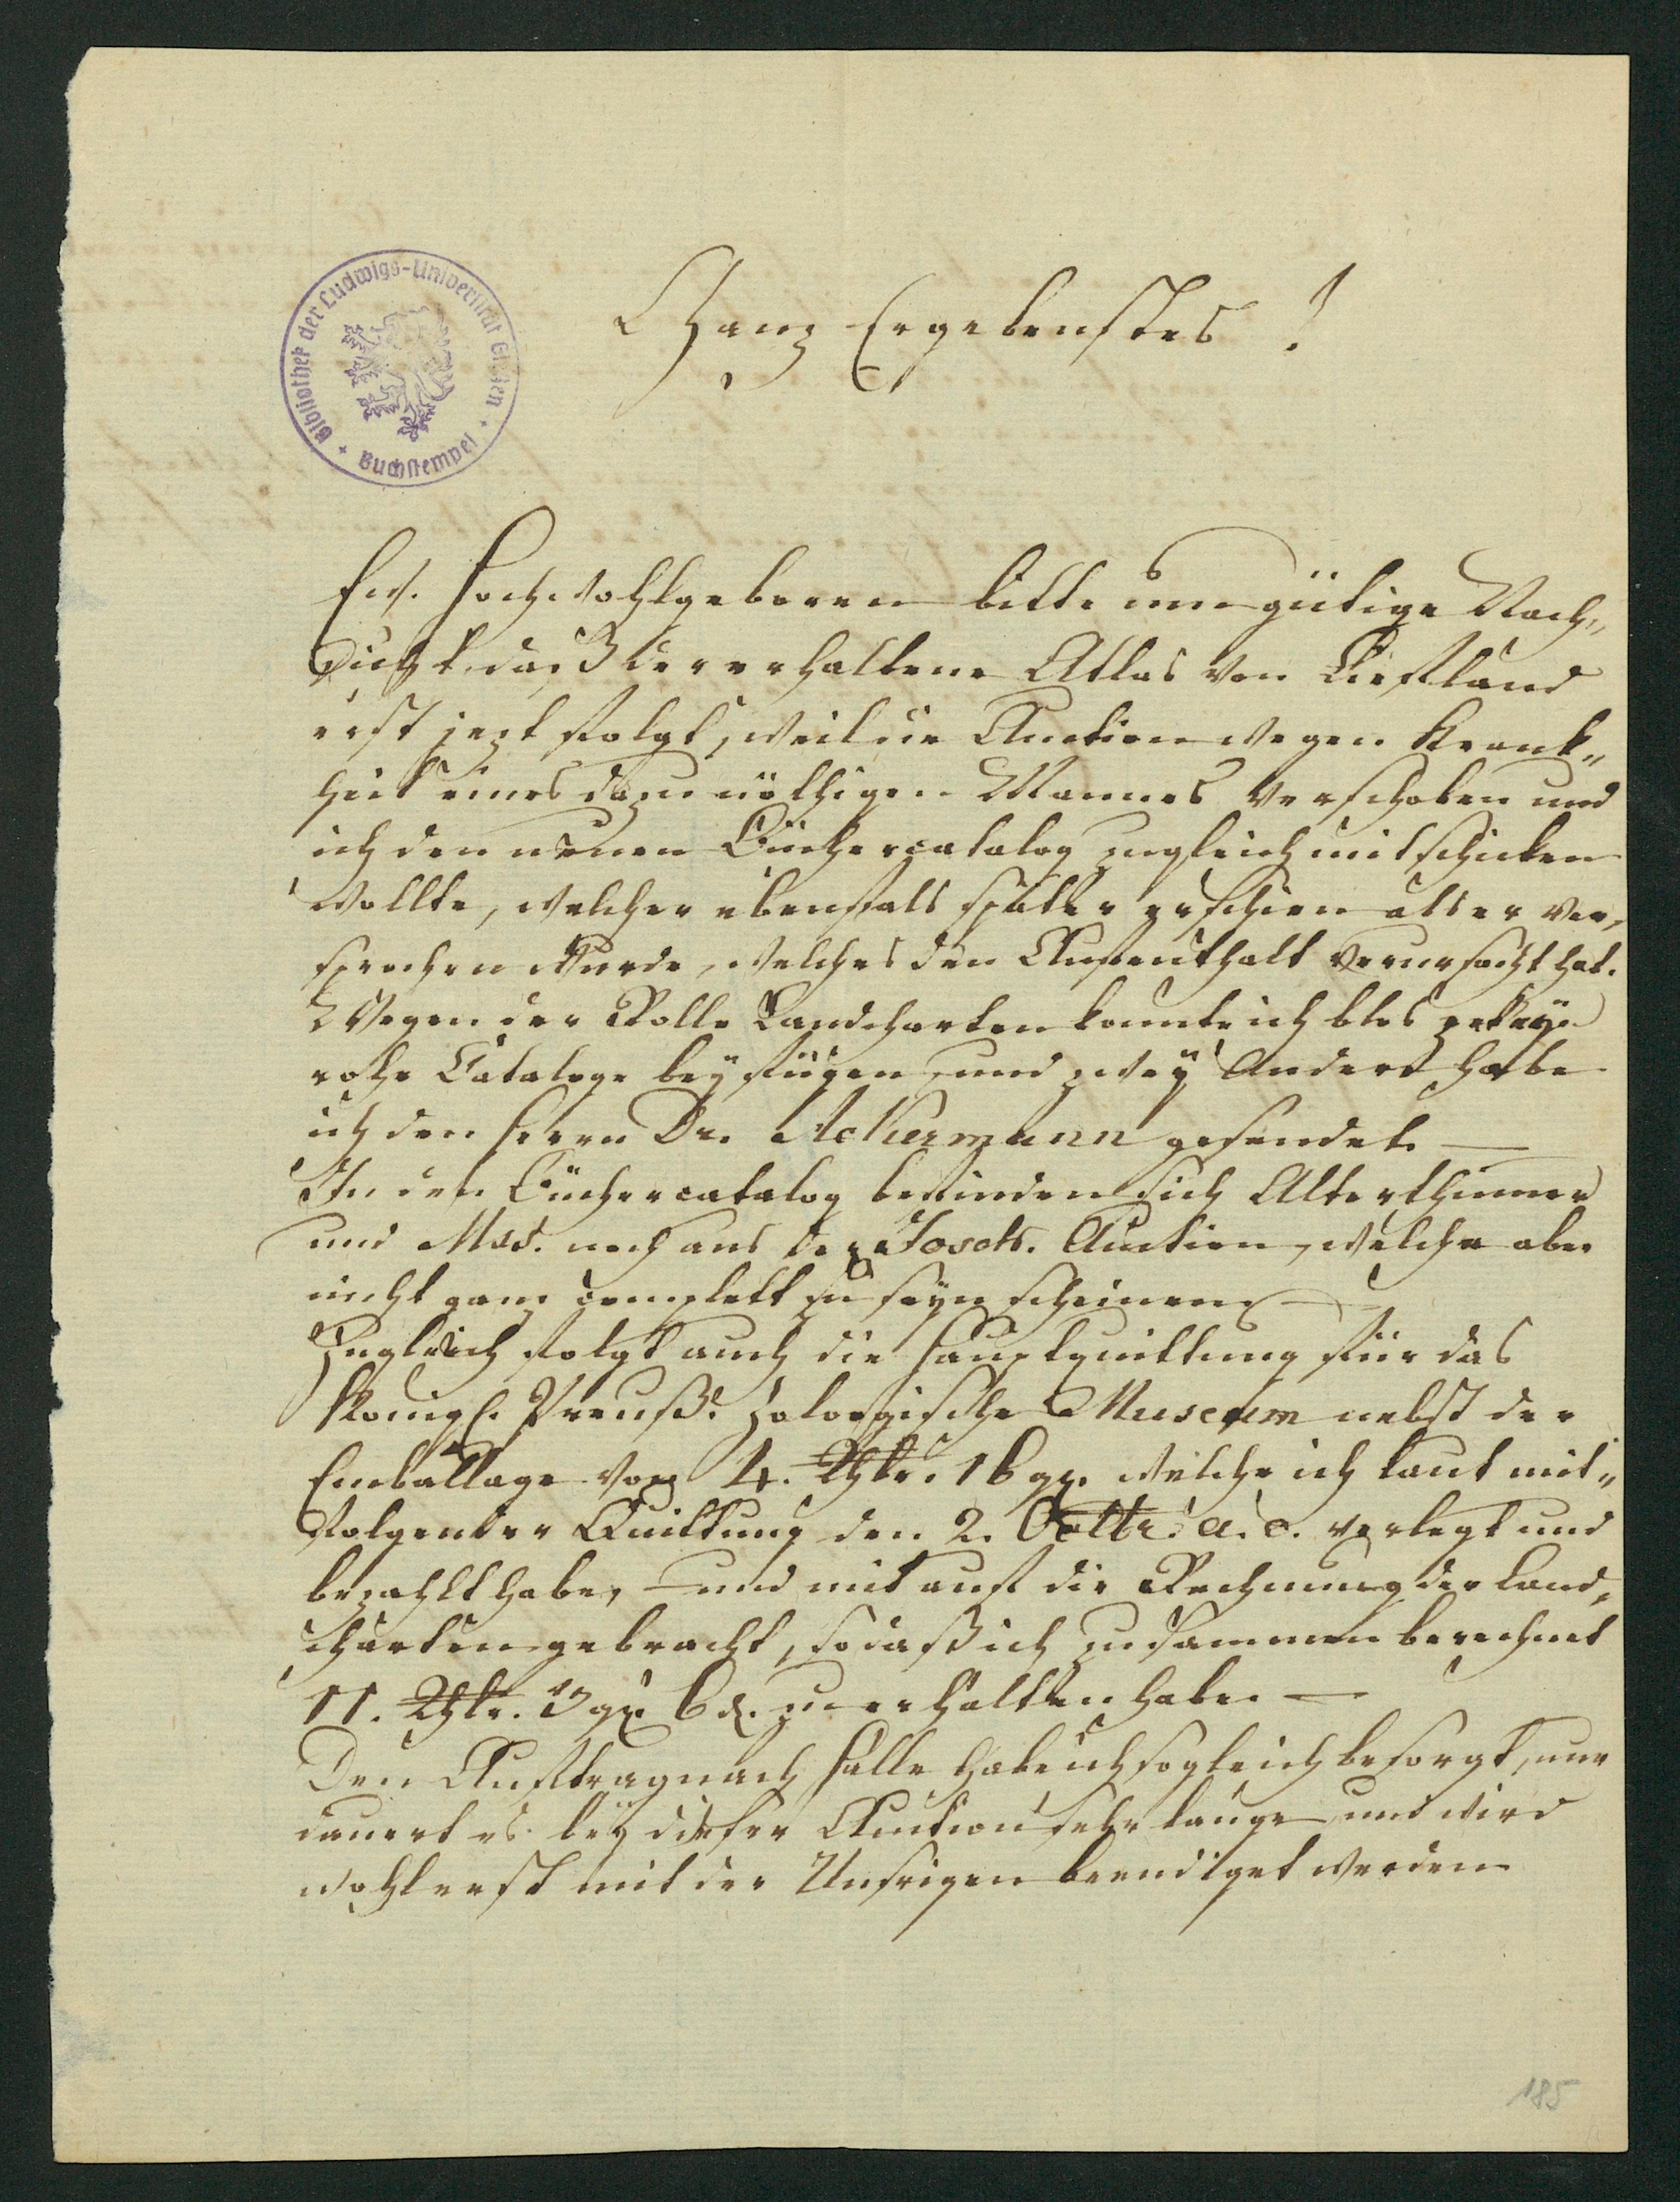 Bibliothek der Ludwigs-Universität Gießen
Buchstempel
Ganz Ergebenstes!
Ew. Hochwohlgeboren bitte um gütige Nach„
sicht, daß der erhaltene Atlas von Liefland
erst jezt folgt, weil die Auction wegen Krank„
heit eines dazu nöthigen Mannes verschoben und
ich den neuen Büchercatalog zugleich mitschicken
wollte, welcher ebenfals später erschien als er ver„
sprochen wurde, welches den Aufenthalt verursacht hat.
Wegen der Rolle Landcharten konnte ich blos zwey
rohe Cataloge beyfügen, und zwey Andere habe
ich den Herrn Dr. Ackermann gesendet. —
In den Büchercatalog befinden sich Alterthümer
und Mss. noch aus der Auction, welche aber
nicht ganz complett zu seyn scheinen. —
Zugleich folgt auch die Hauptquittung für das
Königl. Preuß. Zologische Museum nebst der
Emballage von 4. Thlr. 16 gr. welche ich laut mit„
folgender Quittung den 2. Octbr. a. c. verlegt und
bezahlt habe, und mit auf die Rechnung der Land„
charten gebracht, sodaß ich zusammen berechnet
11. Thlr. 13 gr. 6 d. zu erhalten habe. —
Den Auftrag nach Halle habe ich sogleich besorgt, nur
dauert es bey dieser Auction sehr lange und wird
wohl erst mit der Unsrigen beendiget werden
185